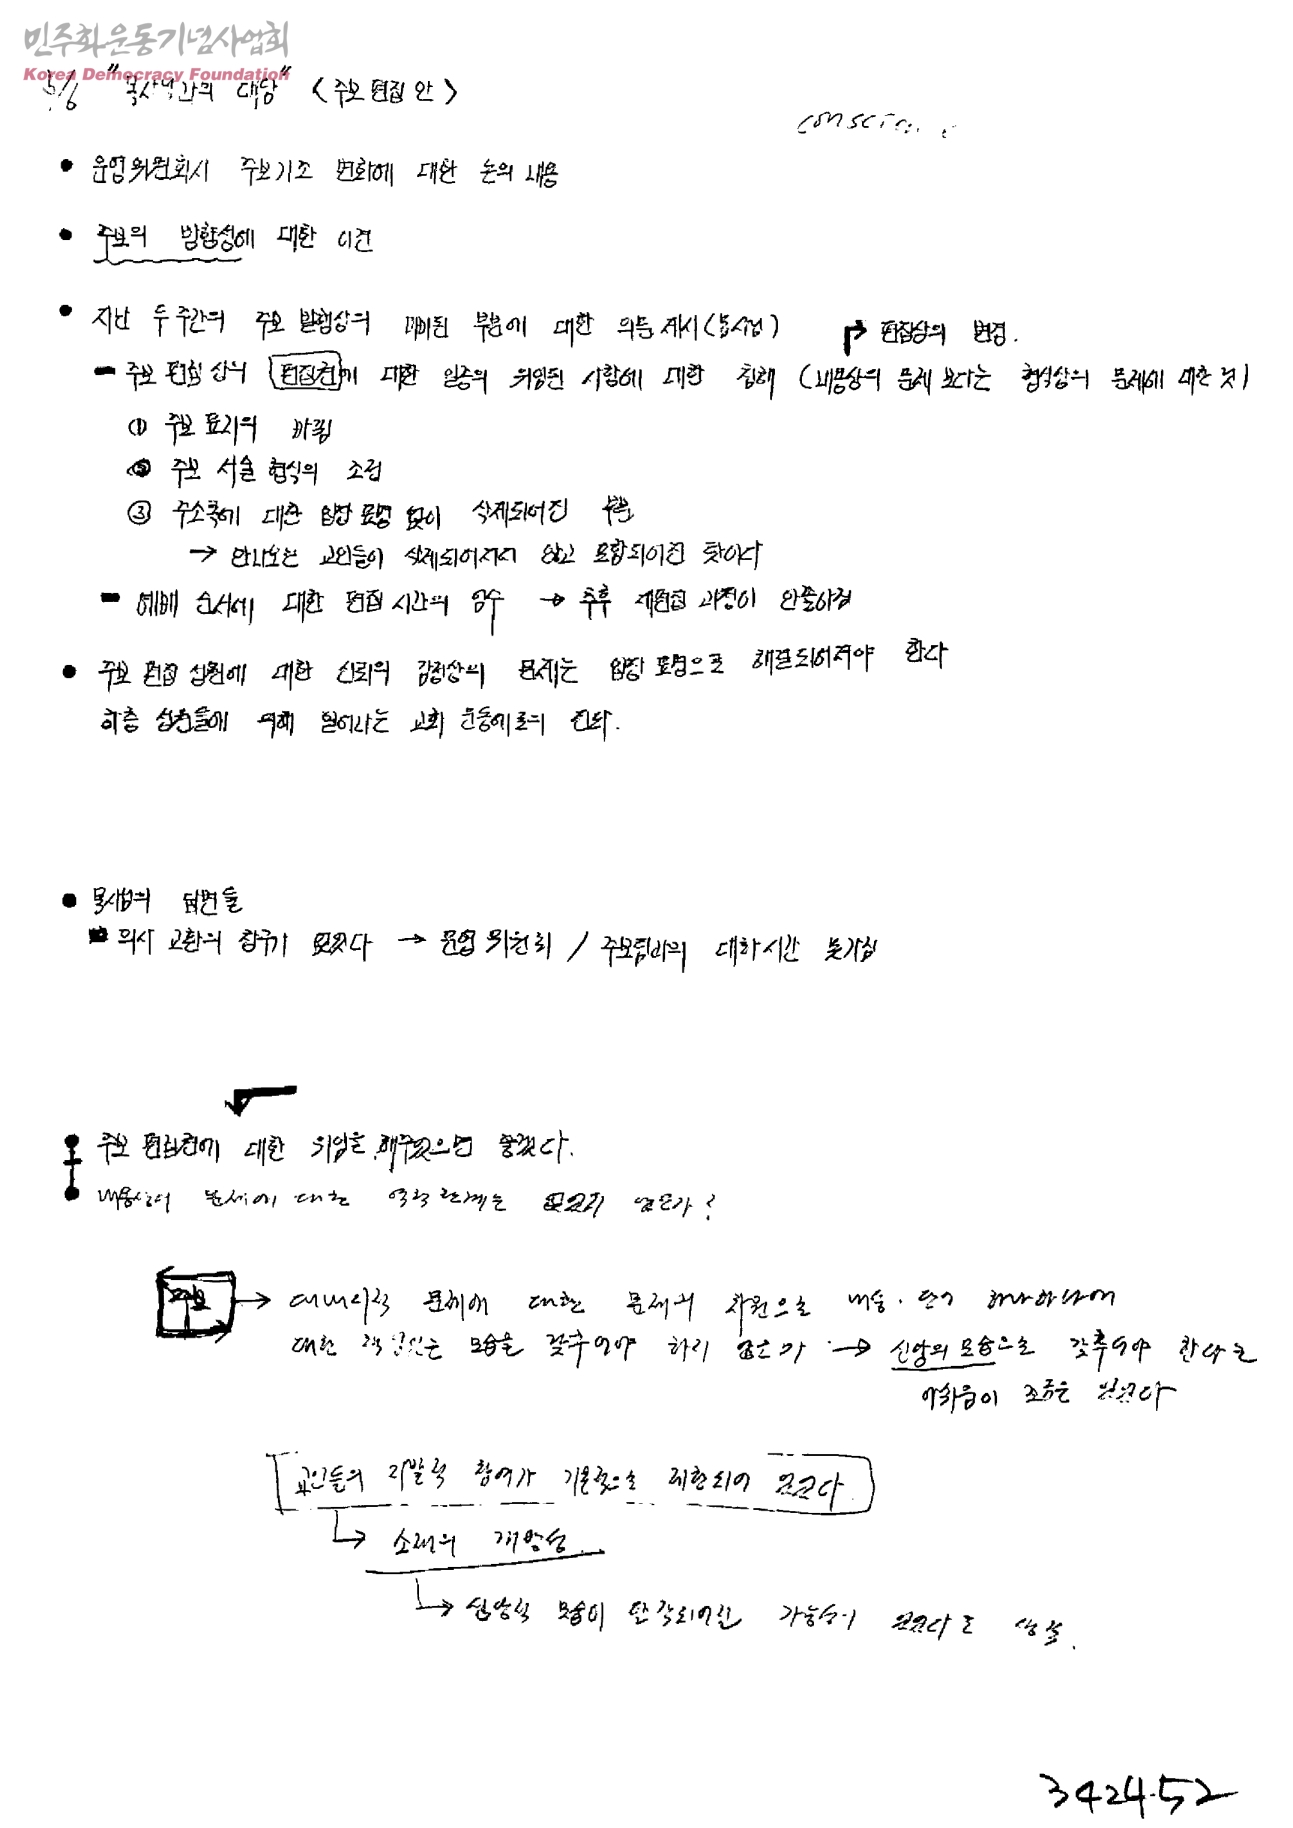 민주화운동기념사업회
Korea Democracy Foundation
5/6 "목사님과의 대담" < 주보 편집 안 >
• 운영위원회시 주보기조 변화에 대한 논의 내용
• 주보의 방향성에 대한 이견
• 지난 두 주간의 주보 발행상의 부분에 대한 의문 제시 ( )
편집상의 변경.
- 주보 편집 상의 편집권에 대한 일종의 위임된 사항에 대한 침해 (내용상의 문제 보다는 형식상의 문제에 대한 것)
① 주보 표지의 바뀜
② 주보 서술 형식의 조정
③ 주소록에 대한 입장 표명 없이 삭제되어진 부분
→ 안나오는 교인들이 삭제되어져서 않고 포함되어진 것이다
- 예배 순서에 대한 편집 시간의 엄수 → 추후 재편집 과정이
• 주보 편집 성원에 대한 신뢰의 감정상의 문제는 입장 표명으로 해결되어져야 한다
하층 성원들에 의해 일어나는 교회 운동에로의
• 목사님의 답변들
- 의사 교환의 창구가 없었다 → 운영 위원회 / 주보팀과의 대화시간 못가짐
• 주보 편집권에 대한 위임을 해주었으면 좋겠다.
• 내용상의 문제에 대한 역학 관계는 없는가?
주보 → 대내외적 문제에 대한 문제의 차원으로 내용·단어 하나하나에
대한 책임있는 모습을 갖추어야 하지 않은가 → 신앙의 모습으로 갖추어야 한다는
아쉬움이 조금은 있었다
교인들의 자발적 참여가 기본적으로 제한되어 있었다.
→ 소재의 개방성.
→ 신앙적 모습이 망각되어진 가능성이 있었다고 생각.
342452